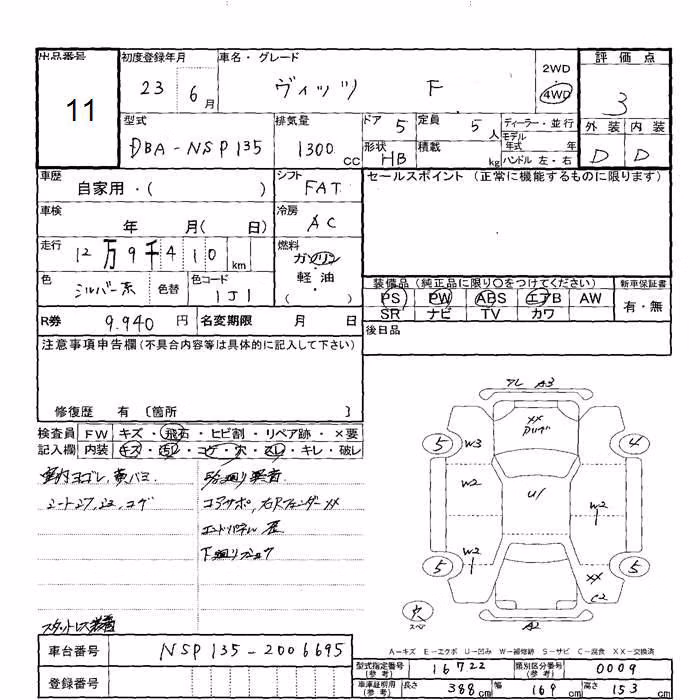 出品番号 初度登録年月 車名・グレード 評価点
11 23 6月 ヴィッツ F 2WD 4WD 3
型式 排気量 ドア 5 定員 5人 ディーラー・並行 外装 内装
DBA-NSP135 1300cc 形状 HB 積載 kg モデル年式 年 ハンドル 左・右 D D
車歴 自家用・( ) シフト FAT セールスポイント (正常に機能するものに限ります)
車検 年 月( 日) 冷房 AC
走行 12万9千410km 燃料 ガソリン
色 シルバー系 色替 色コード 1J1 軽・油 ( )
装備品(純正品に限り○をつけてください) 新車保証書
PS PW ABS エアB AW 有・無
SR ナビ TV カワ
R券 9.940円 名変期限 月 日 後日品
注意事項申告欄(不具合内容等は具体的に記入して下さい)
修復歴 有 〔箇所 〕
検査員 FW キズ・飛石・ヒビ割・リペア跡・×要
記入欄 内装 キズ・汚レ・コゲ・穴・スレ・キレ・破レ
室内ヨゴレ,
コアサポ,右Rフェンダーxx
エンドパネル
下廻り
スタットレス装着
A3
xx
5 W3 4
W2 U1 W2
W2
5 xx 5
C2
穴
スペア
A2
A-キズ E-エクボ U-凹み W-補修跡 S-サビ C-腐食 XX-交換済
車台番号 NSP135-2006695
型式指定番号(参考) 16722 類別区分番号(参考) 0009
登録番号 車庫証明用(参考) 長さ 388cm 幅 169cm 高さ 153cm